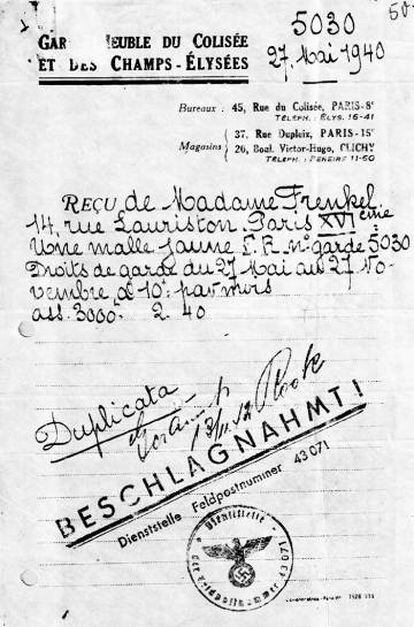 5030
50
27 Mai 1940
GARDE MEUBLE DU COLISÉE
ET DES CHAMPS-ÉLYSÉES
Bureaux : 45, Rue du Colisée, PARIS-8e
TÉLÉPH. : ÉLYS. 16-41
Magasins { 37, Rue Dupleix, PARIS-15e
20, Boul. Victor-Hugo, CLICHY
TÉLÉPH. : PEREIRE 11-60
REÇU de Madame Frenkel
14, rue Lauriston Paris XVIème
Une malle jaune F.R. n° garde 5030
Droits de garde du 27 Mai au 27 No-
vembre, à 10f par mois
ass. 3000. 2. 40
Duplicata
BESCHLAGNAHMT!
Dienststelle Feldpostnummer 43071
Dienststelle
der Feldpostnummer 43071